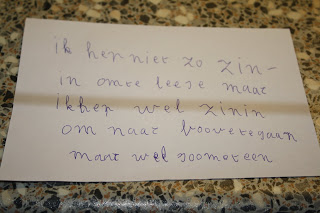 ik her niet zo zin-
in omte leese maar
ikher wel zinin
om naar booveregaan
maar wel soomoreen